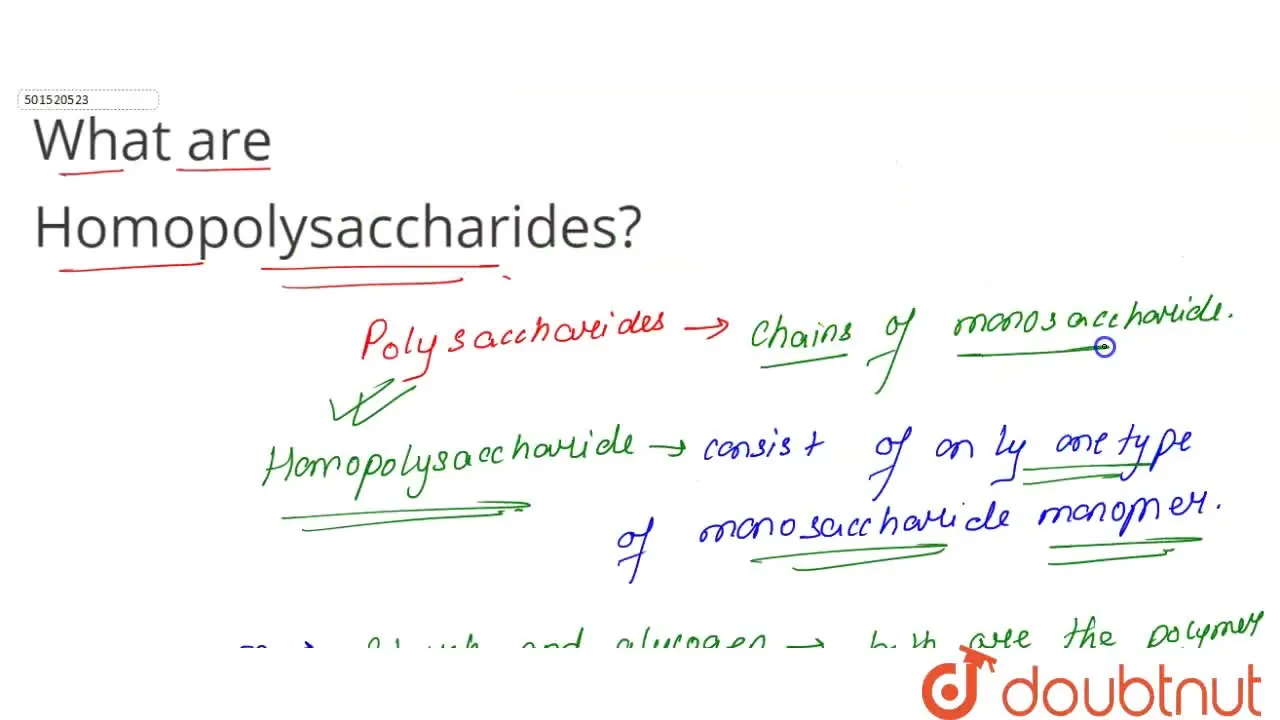 501520523
What are
Homopolysaccharides?
Polysaccharides → Chains of monosaccharide.
Homopolysaccharide → consist of only one type
of monosaccharide monomer.
→ and glycogen → both are the polymer
doubtnut